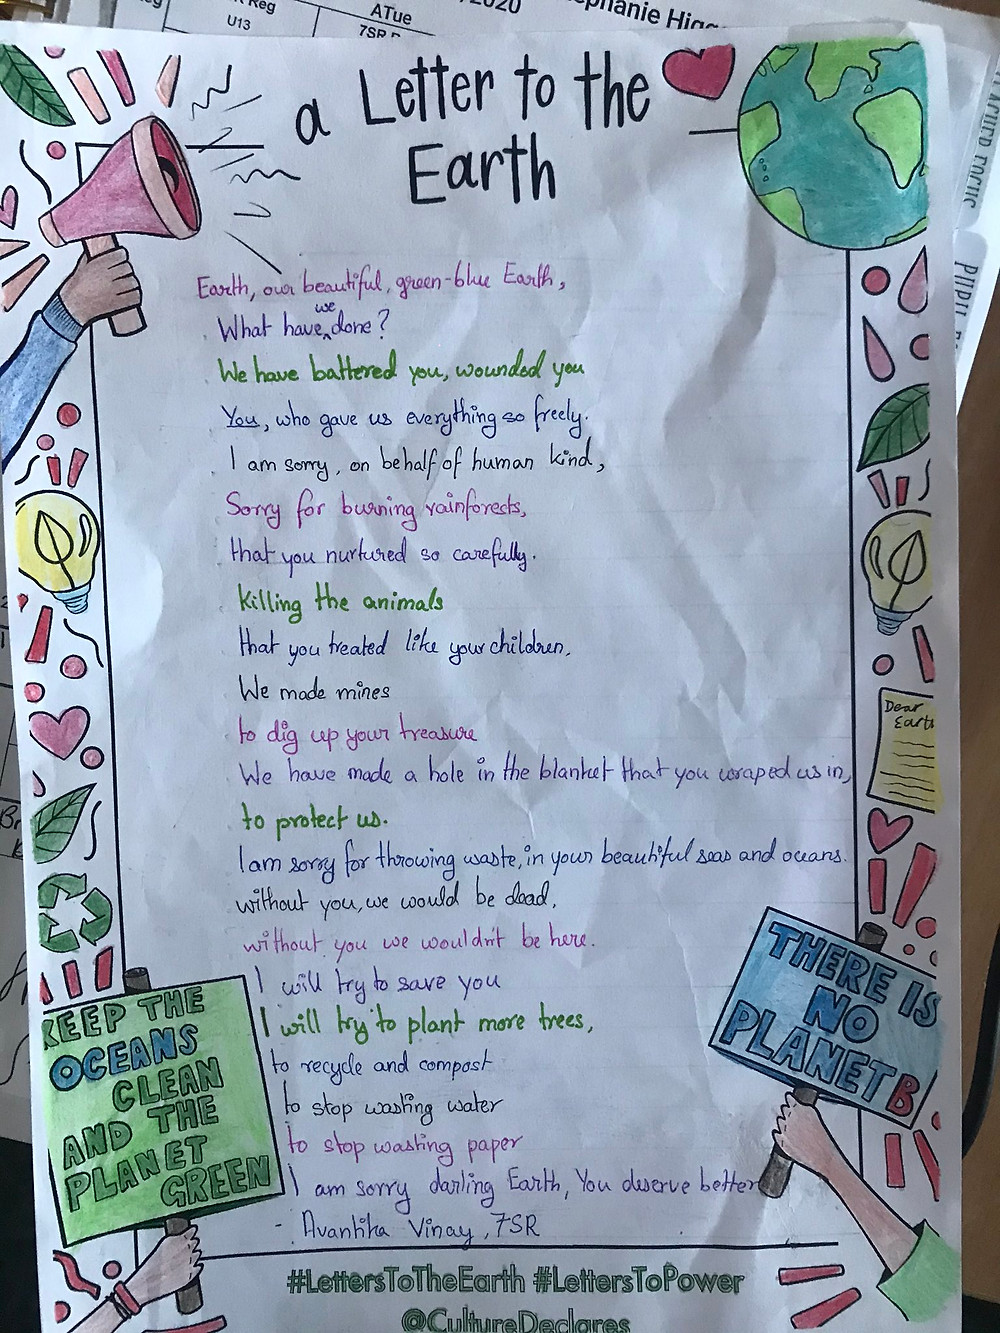 /2020
Reg
U13
ATue
7SR
a Letter to the
Earth
Earth, our beautiful, green-blue Earth,
What have we done?
We have battered you, wounded you
You, who gave us everything so freely.
I am sorry, on behalf of human kind,
Sorry for burning rainforects,
that you nurtured so carefully.
Killing the animals
that you treated like your children.
We made mines
to dig up your treasure
We have made a hole in the blanket that you wraped us in,
to protect us.
I am sorry for throwing waste, in your beautiful seas and oceans.
without you, we would be dead,
without you we wouldn't be here.
I will try to save you
I will try to plant more trees,
to recycle and compost
to stop wasting water
to stop wasting paper
I am sorry darling Earth, You deserve better
- Avantika Vinay, 7SR
Dear
Earth
KEEP THE
OCEANS
CLEAN
AND THE
PLANET
GREEN
THERE IS
NO
PLANET B
#LettersToTheEarth #LettersToPower
@CultureDeclares